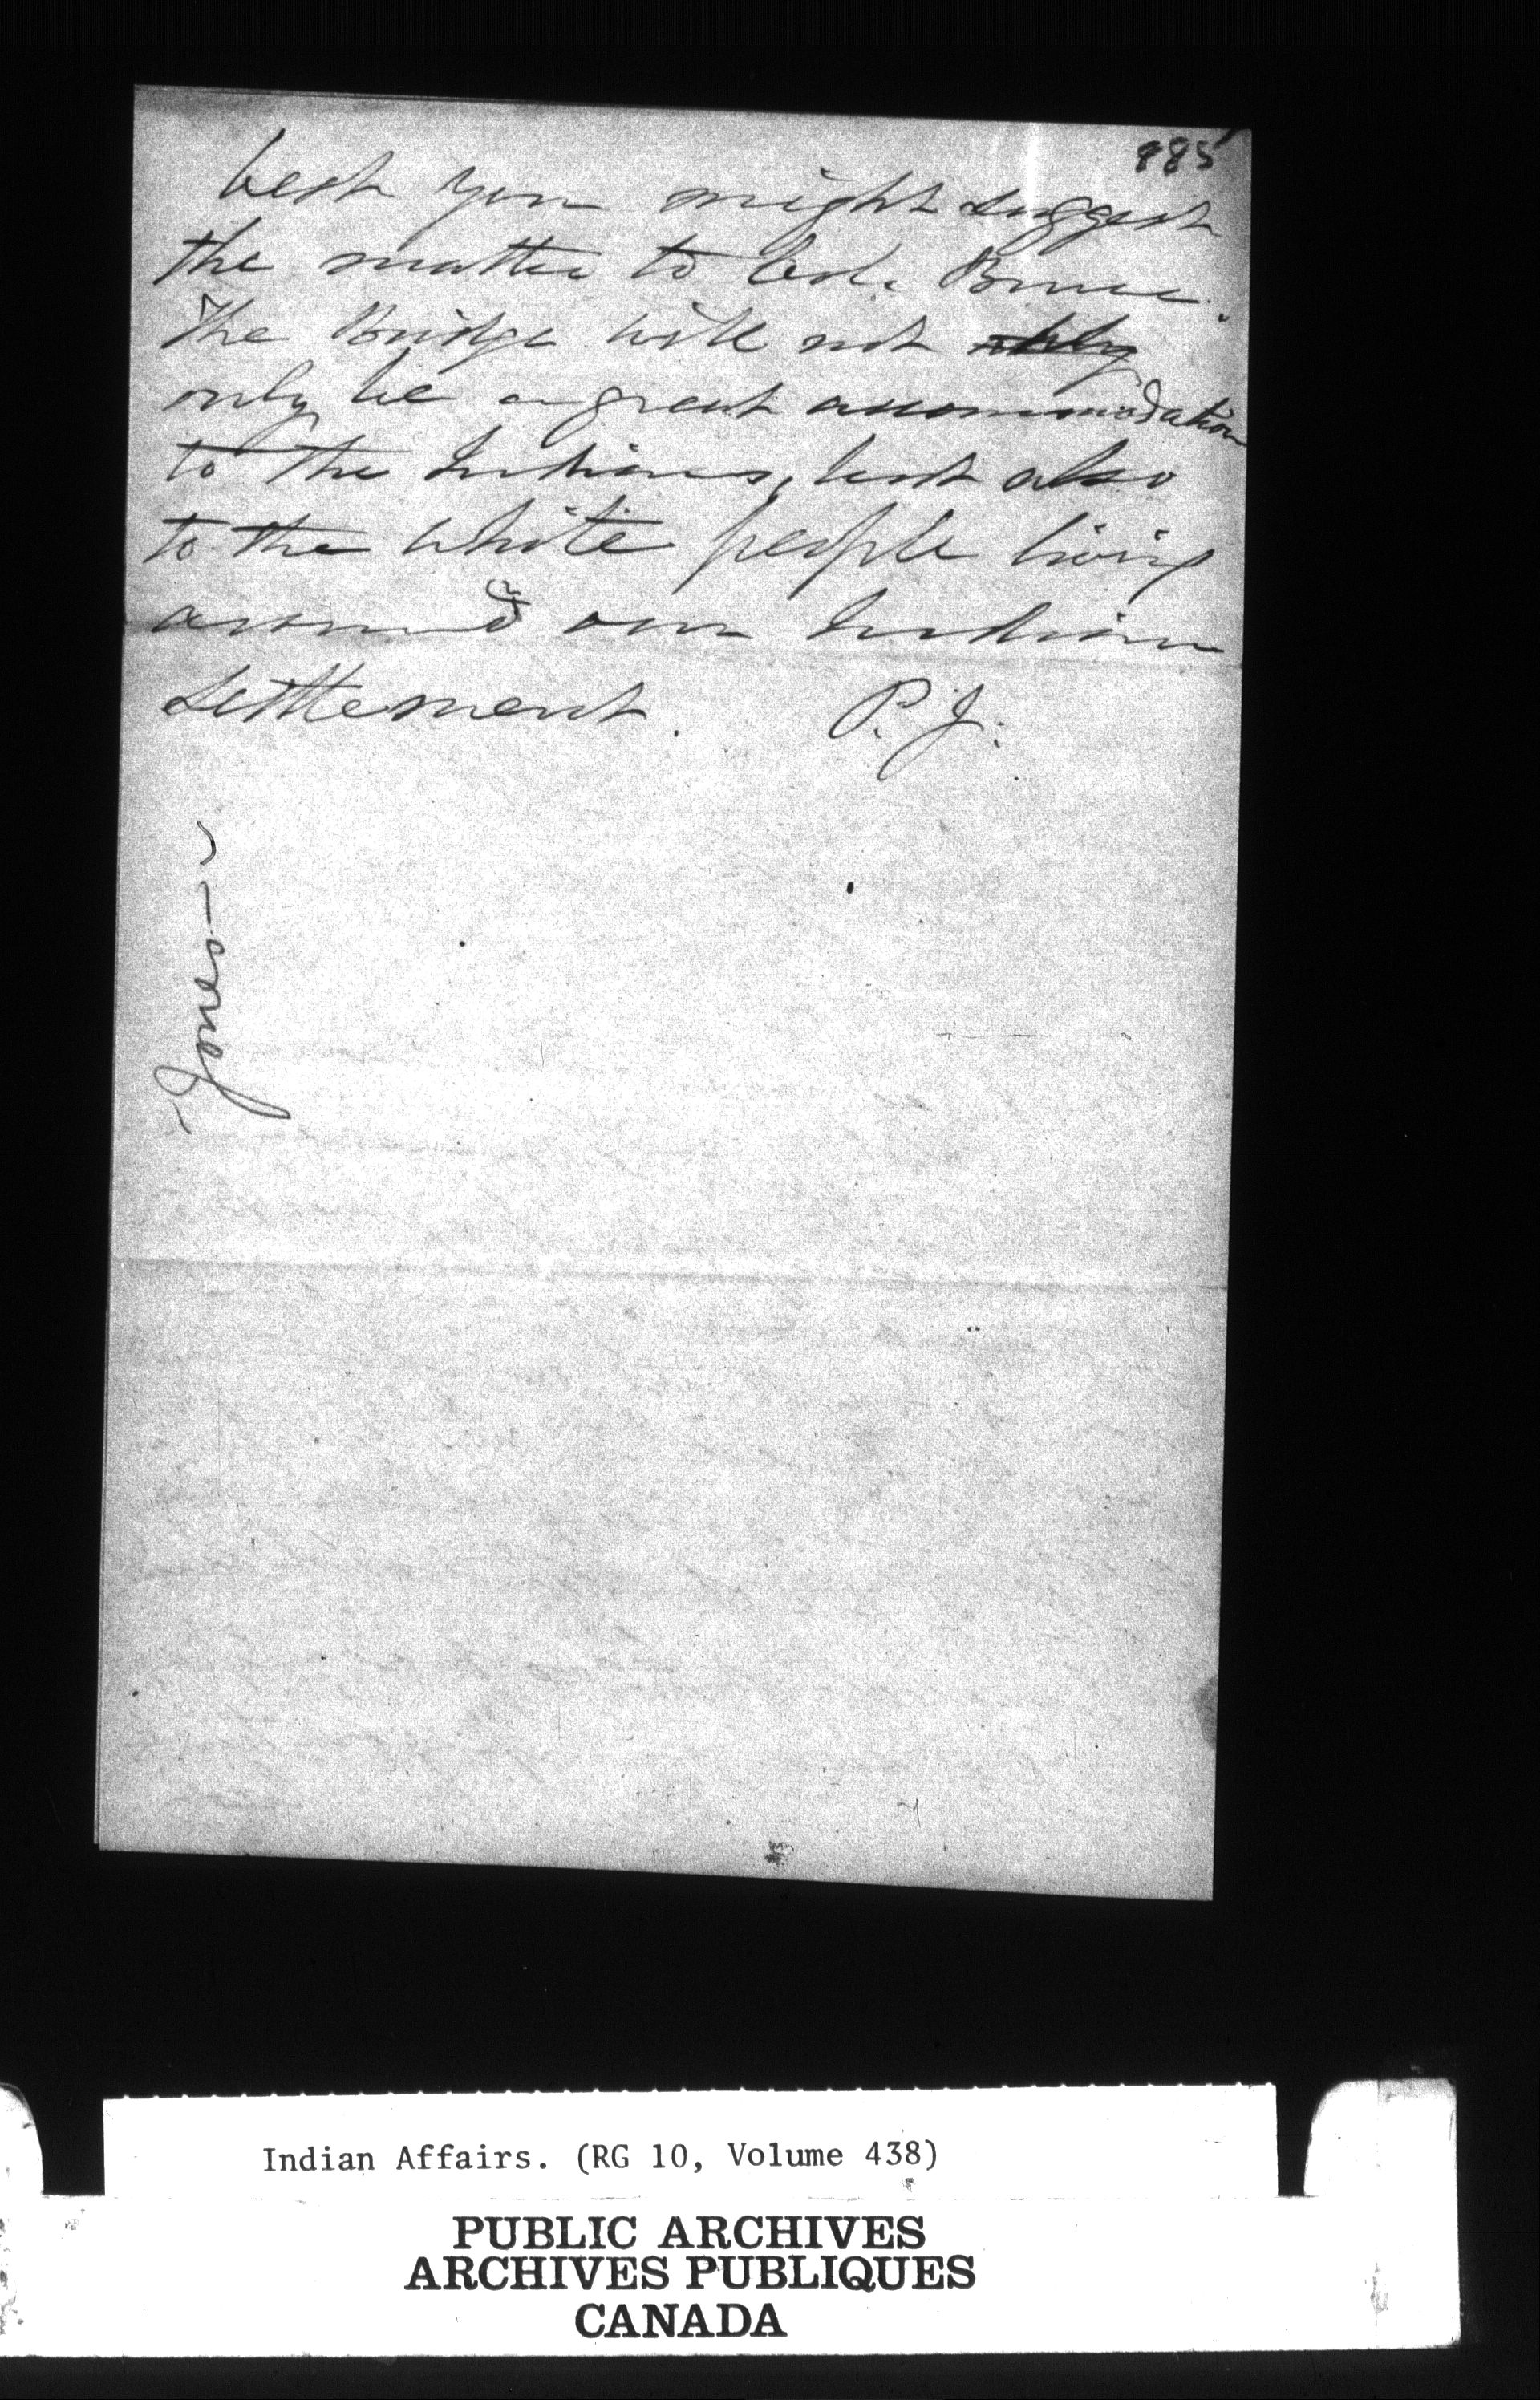 885
best you might suggest
the matter to Col. Bruce.
The Bridge will not only
only be a great accommodation
to the Indians, but also
to the white people living
around our Indian
settlement. P. J.
Jones
Indian Affairs. (RG 10, Volume 438)
PUBLIC ARCHIVES
ARCHIVES PUBLIQUES
CANADA